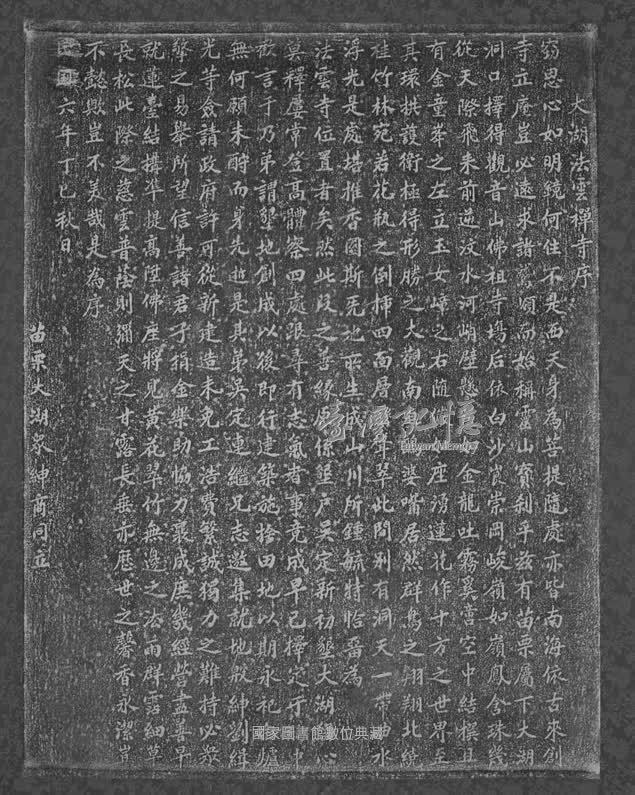 大湖法雲禪寺序
竊思心如明鏡何住不是西天身為菩提隨處亦皆南海依古來創
寺立庵豈必遠求諸鷲嶺而始稱靈山寶剎乎茲有苗栗屬下大湖
洞口擇得觀音山佛祖寺場后依白沙崀崇岡峻嶺如嶺鳳含珠幾
從天際飛來前迎汶水河峭壁懸 金龍吐霧奚啻空中結撰且
有金童峯之左立玉女嶂之右隨 座湧蓮花作十方之世界至
其環拱護衛極得形勝之大觀南 婆嘴居然群鳥之翱翔北繞
桂竹林宛若花瓶之倒插四面層 聳翠此間別有洞天一帶 水
浮光是處堪推香國斯旡地所生成山川所鍾毓特恰留為
法雲寺位置者矣然此段之善緣原係墾戶吳定新初墾大湖 心
冥釋屢常登高體察四處跟尋有志氣者事竟成早已擇定于 中
歡言于乃弟謂墾地創成以後即行建築施捨田地以期永祀 爐
無何願未酧而身先逝是其弟吳定連繼兄志邀集就地殷紳劉緝
光等僉請政府許可從新建造未免工浩費繁誠獨力之難持必衆
擎之易舉所望信善諸君子捐金樂助協力襄成庶幾經營盡善早
就蓮臺結搆準提高陞佛座將見黃花翠竹無邊之法雨群霑細草
長松此際之慈雲普蔭則彌天之甘露長垂亦歷世之馨香永潔豈
不懿歟豈不美哉是為序
六年丁巳秋日
苗栗大湖衆紳商同立
國家圖書館數位典藏
臺灣記憶
Taiwan Memory